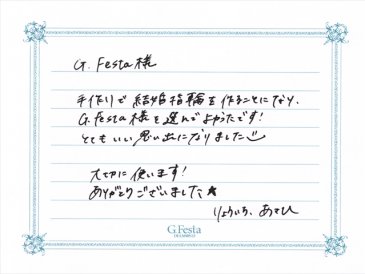 G. Festa様
手作りで結婚指輪を作ることになり、
G. Festa様を選んでよかったです!
とてもいい思い出になりました
大切に使います!
ありがとうございました★
りょういち、あさひ
G.Festa